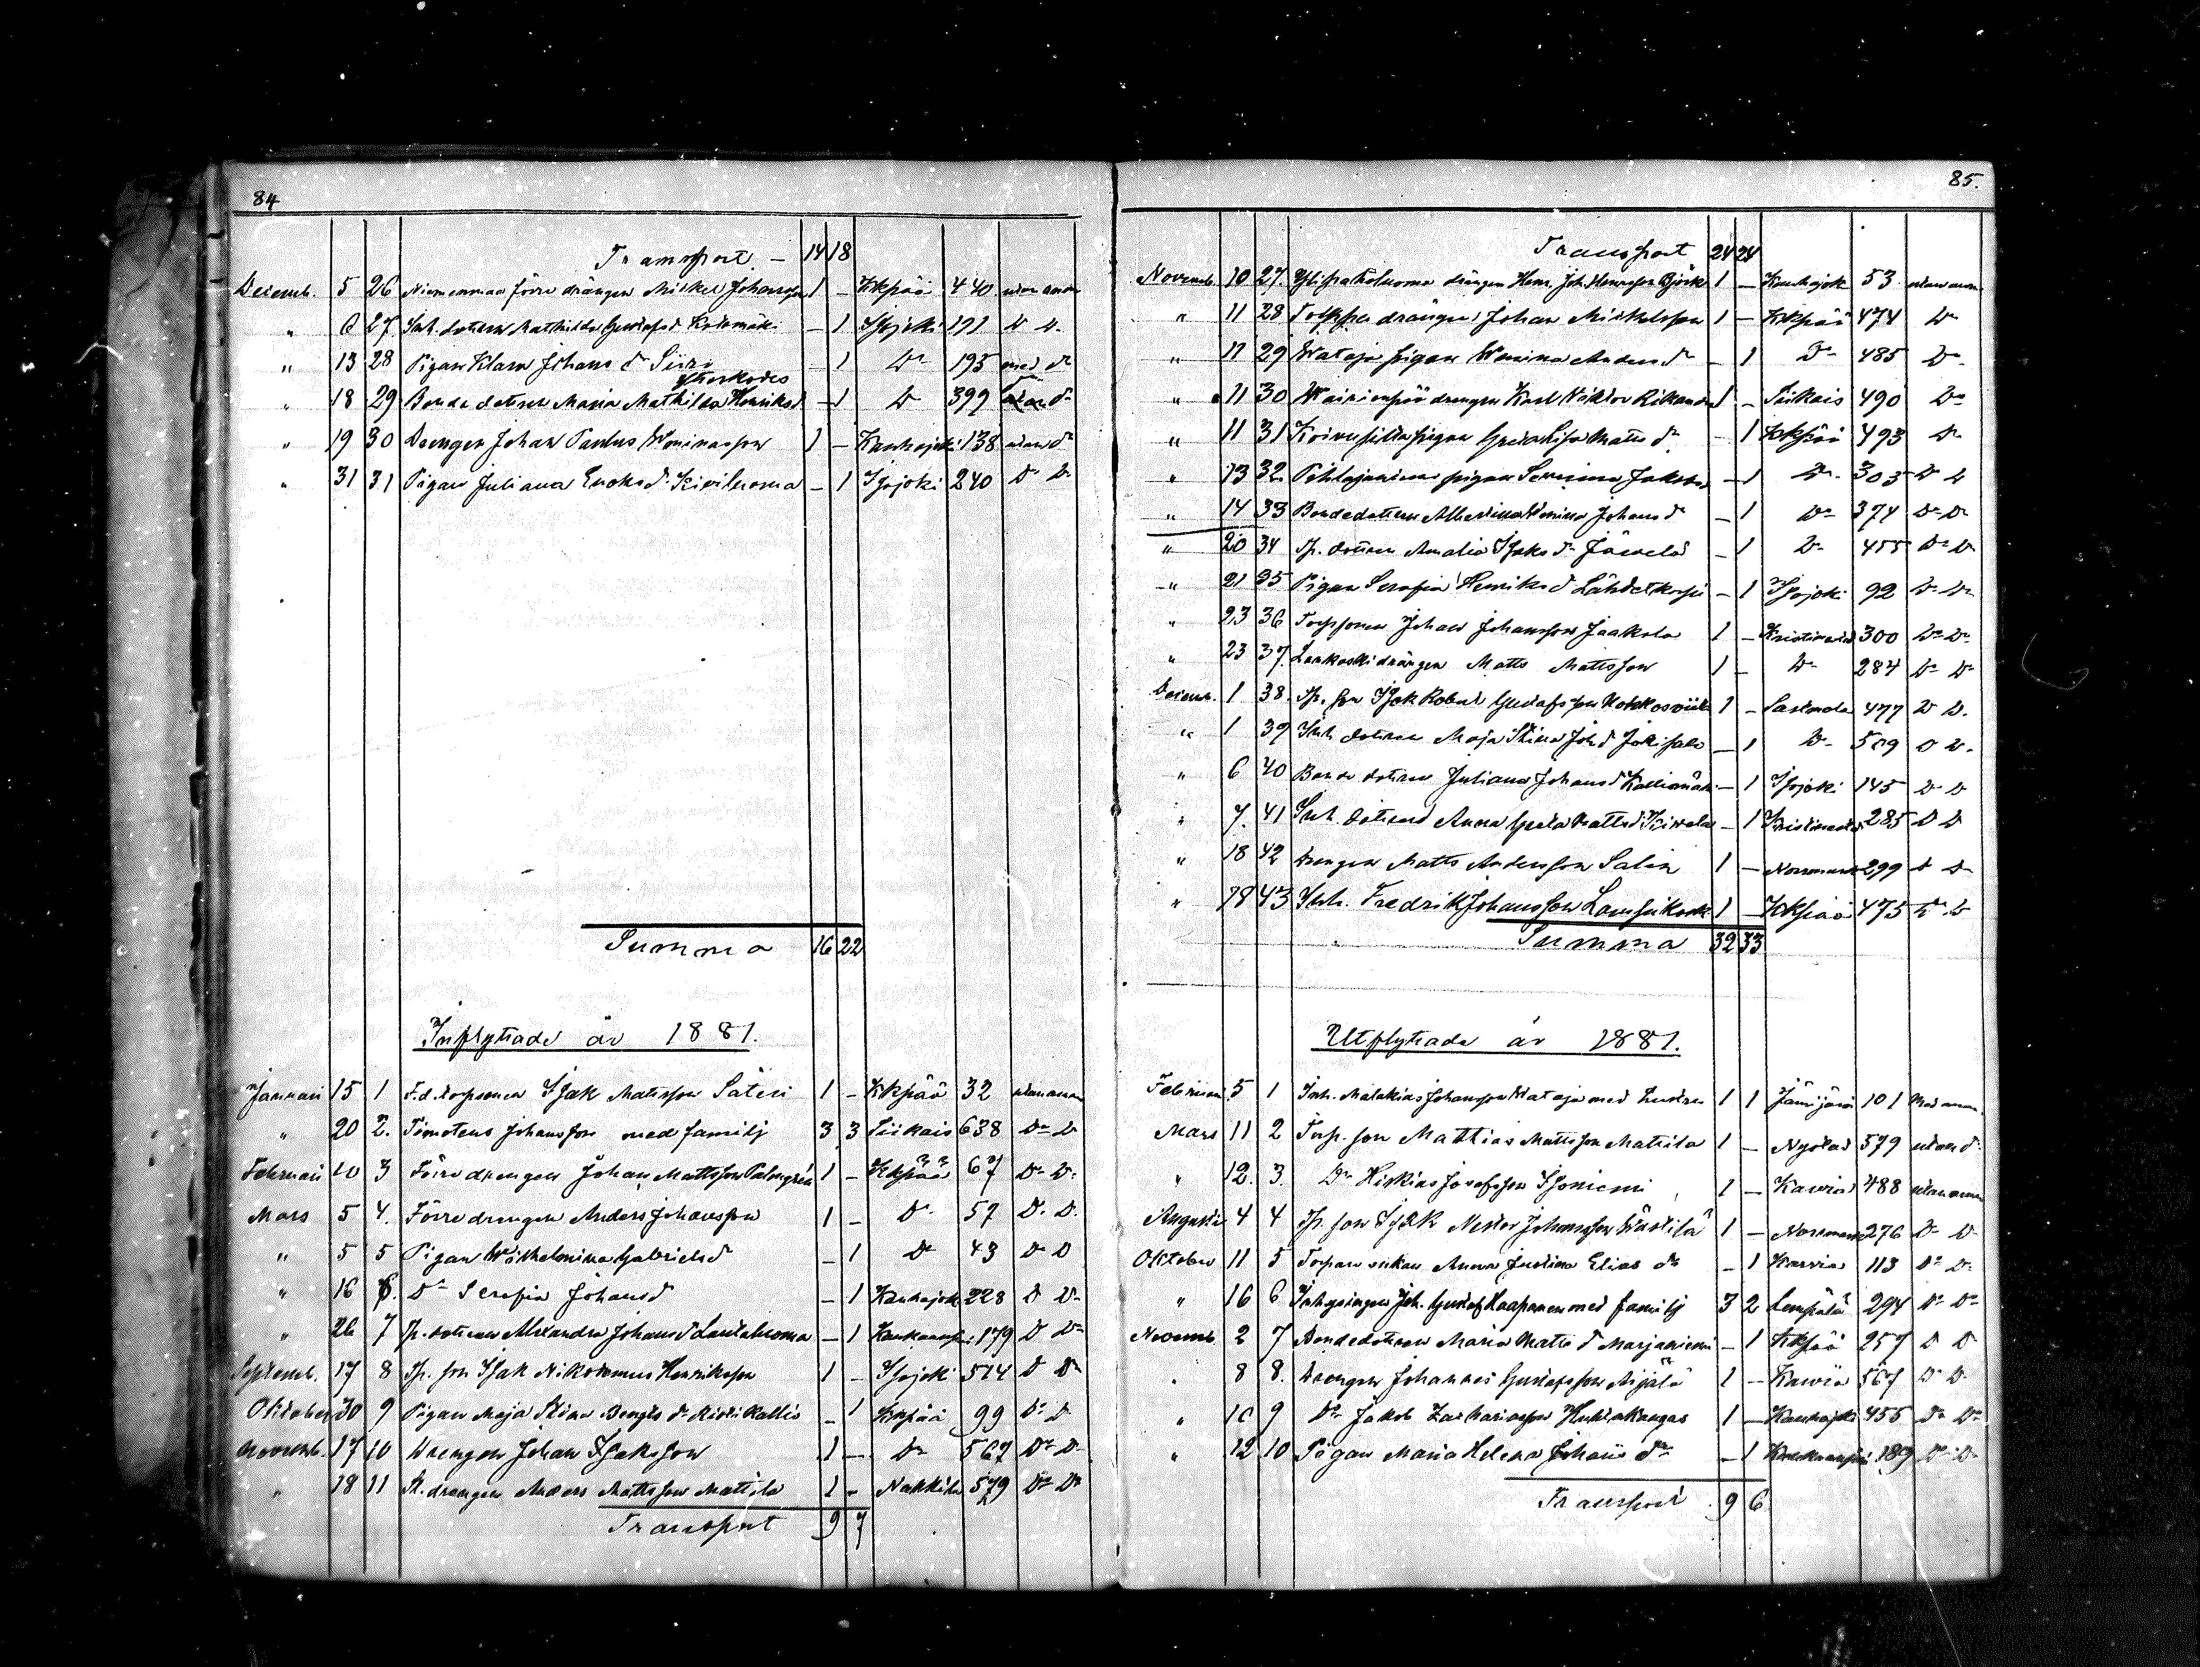 84
Transport – 14 18
Decemb. 5 26 Niemenmaa förre drängen Mickel Johansson 1 – Kkpää 440 utan anm
" 6 27 Inh. dottern Mathilda Gustafsd Koskimäki – 1 Isojoki 191 Do Do
" 13 28 Pigan Klara Johans dr Siiro – 1 Do 195 med do
ytterkodes
" 18 29 Bonde dottren Maria Mathilda Henriksd – 1 Do 399 do
" 19 30 Drengen Johan Paulus Wominasson 1 – Kauhajoki 138 utan do
" 31 31 Pigan Juliana Enoks dr Kiviluoma – 1 Isojoki 240 Do Do
Summa 16 22
Inflyttade år 1881.
Januari 15 1 F.d. torparen Isak Matsson Säteri 1 – Kkpää 32 utan anm
" 20 2. Timoteus Johansson med familj 3 3 Siikais 638 Do Do
Februari 20 3 Förre drengen Johan Mattsson Palmgrén 1 – Kkpää 67 Do Do
Mars 5 4. Förre drengen Anders Johansson 1 – Do 57 Do Do
" 5 5 Pigan Wilhelmina Gabrielsd – 1 Do 43 Do Do
" 16 6. Do Serafia Johansd – 1 Kauhajoki 228 Do Do
" 26 7 Tp. dottren Alexandra Johansd Lautaluoma – 1 Kankaanpää 179 Do Do
Septemb. 17 8 Tp. son Isak Nikodemus Henriksson 1 – Isojoki 514 Do Do
Oktober 30 9 Pigan Maja Stina Bengts dr Ristikallio – 1 Kkpää 99 Do Do
Novemb. 17 10 Drengen Johan Isaksson 1 – Do 567 Do Do
" 18 11 St. drengen Anders Mattsson Mattila 1 – Nakkila 579 Do Do
Transport 9 7
85.
Transport 24 24
Novemb. 10 27. Ylipaholuoma drängen Henr. Joh. Henrsson Björk 1 – Kauhajok 53 utan anm
" 11 28 Torppa drängen Johan Mickelsson 1 – Kkpää 474 Do
" 11 29 Wataja pigan Womina Anders dr – 1 Do 485 Do
" 11 30 Wairionpää drengen Karl Viktor Rikander 1 – Siikais 490 Do
" 11 31 Koivusilta pigan Greta Lisa Matts dr – 1 Kkpää 493 Do
" 13 32 Pihlajaniemi pigan Serafina Jakobsd – 1 Do 303 Do Do
" 14 33 Bondedottern Albertina Womina Johansd – 1 Do 374 Do Do
" 20 34 Tp. dottren Amalia Isaks dr Järvelä – 1 Do 455 Do Do
" 21 35 Pigan Serafia Henriksd Lähdekorpi – 1 Isojoki 92 Do Do
" 23 36 Torpsonen Johan Johansson Jaakola 1 – Kristinestad 300 Do Do
" 23 37. Lankoski drängen Matts Mattsson 1 – Do 284 Do Do
Decemb. 1 38. Tp. son Isak Robert Gustafsson Kokkosviita 1 – Sastmola 477 Do Do.
" 1 39 Inh. dottren Maja Stina Joh.d Jokisalo – 1 Do 509 Do Do
" 6 40 Bonde dottren Juliana Johansd Kalliomäki – 1 Isojoki 145 Do Do
" 7. 41 Inh. dottren Anna Greta Mattsd Kiwelä – 1 Kristinestad 285 Do Do
" 18 42 Drengen Matts Andersson Salin 1 – Norrmark 299 Do Do
" 18 43 Inh. Fredrik Johansson Lamsikoski 1 – Kkpää 475 Do Do
Summa 32 33
Utflyttade år 1881.
Februari 5 1 Inh. Malakias Johansson Wataja med hustru 1 1 Jämijärvi 101 Med anm
Mars 11 2 Torp. son Matthias Mattsson Mattila 1 – Nystad 579 utan d.
" 12. 3. Do Hiskias Josefsson Isoniemi 1 – Karvia 488 utan anm
Augusti 4 4 Tp. son Isak Nestor Johansson Västilä 1 – Norrmark 276 Do Do
Oktober 11 5 Torpare enkan Anna Justina Elias dr – 1 Karvia 113 Do Do
" 16 6 Inhysingen Joh. Gustaf Haapanen med familj 3 2 Lempälä 294 Do Do
Novemb. 2 7 Bondedottren Maria Matts dr Marjaniemi – 1 Kkpää 257 Do Do
" 8 8. Drengen Johannes Gustafsson Mijälä 1 – Karvia 567 Do Do
" 10 9 Do Jakob Zachariasson Huhtakangas 1 – Kauhajoki 455 Do Do
" 12 10 Pigan Maria Helena Johans dr – 1 Kankaanpää 189 Do Do
Transport 9 6